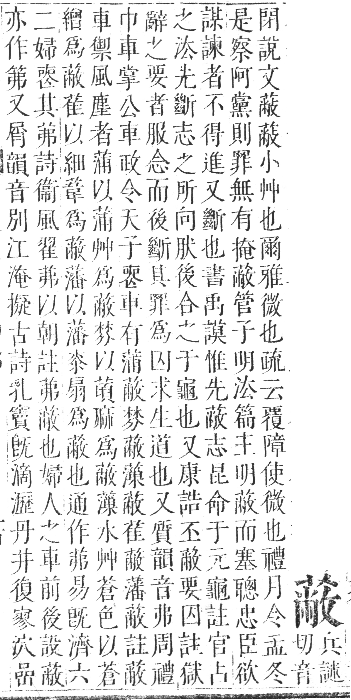 蔽兵謎切音
閉說文蔽蔽小艸也爾雅微也疏云覆障使微也禮月令孟冬
是察阿黨則罪無有掩蔽管子明法篇主明蔽而塞聰忠臣欲
謀諫者不得進又斷也書禹謨惟先蔽志昆命于元龜註官占
之法先斷志之所向肰後合之于龜也又康誥丕蔽要囚註獄
辭之要者服念而後斷其罪為囚求生道也又質韻音弗周禮
巾車掌公車政令天子喪車有蒲蔽棼蔽藻蔽雈蔽藩蔽註蔽
車禦風塵者蒲以蒲艸為蔽棼以萌麻為蔽藻水艸蒼色以蒼
繒為蔽雈以細葦為蔽藩以藩桼扇為蔽也通作茀易旣濟六
二婦喪其茀詩衞風翟茀以朝註茀蔽也婦人之車前後設蔽
亦作第又屑韻音別江淹擬古詩乳竇旣滴瀝丹井復寥泬嵒